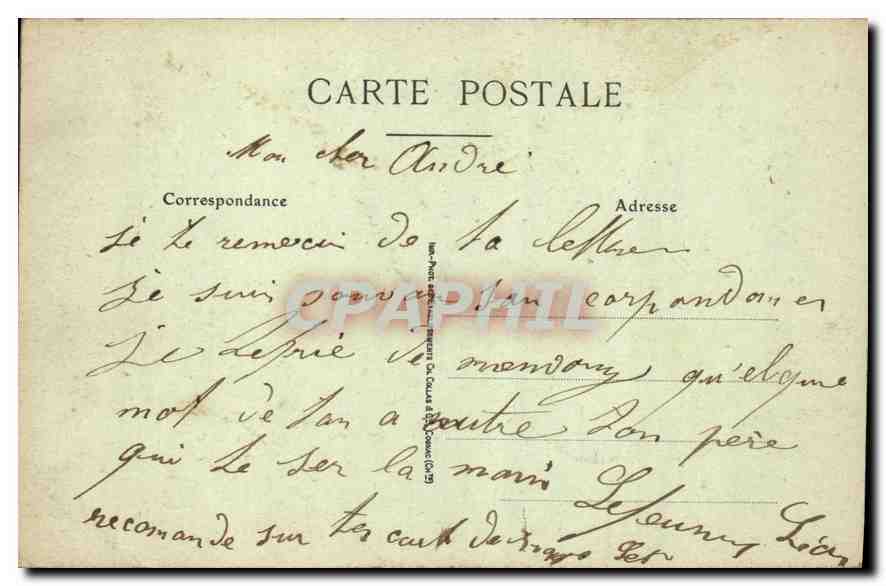 CARTE POSTALE
Mon cher André
Correspondance
Adresse
je te remercin de ta lettre
je suis souvan san corpondances
je te prie de mandony qu'elque
mot de tan a autre ton père
qui te ser la main
Lejeune Léon
recomande sur tes cart
IMP.-PHOT. CH. COLLAS & Cie, COGNAC (Chte)
CPAPHIL